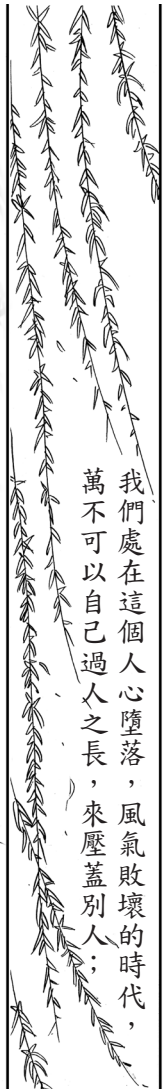 我們處在這個人心墮落，風氣敗壞的時代，
萬不可以自己過人之長，來壓蓋別人；